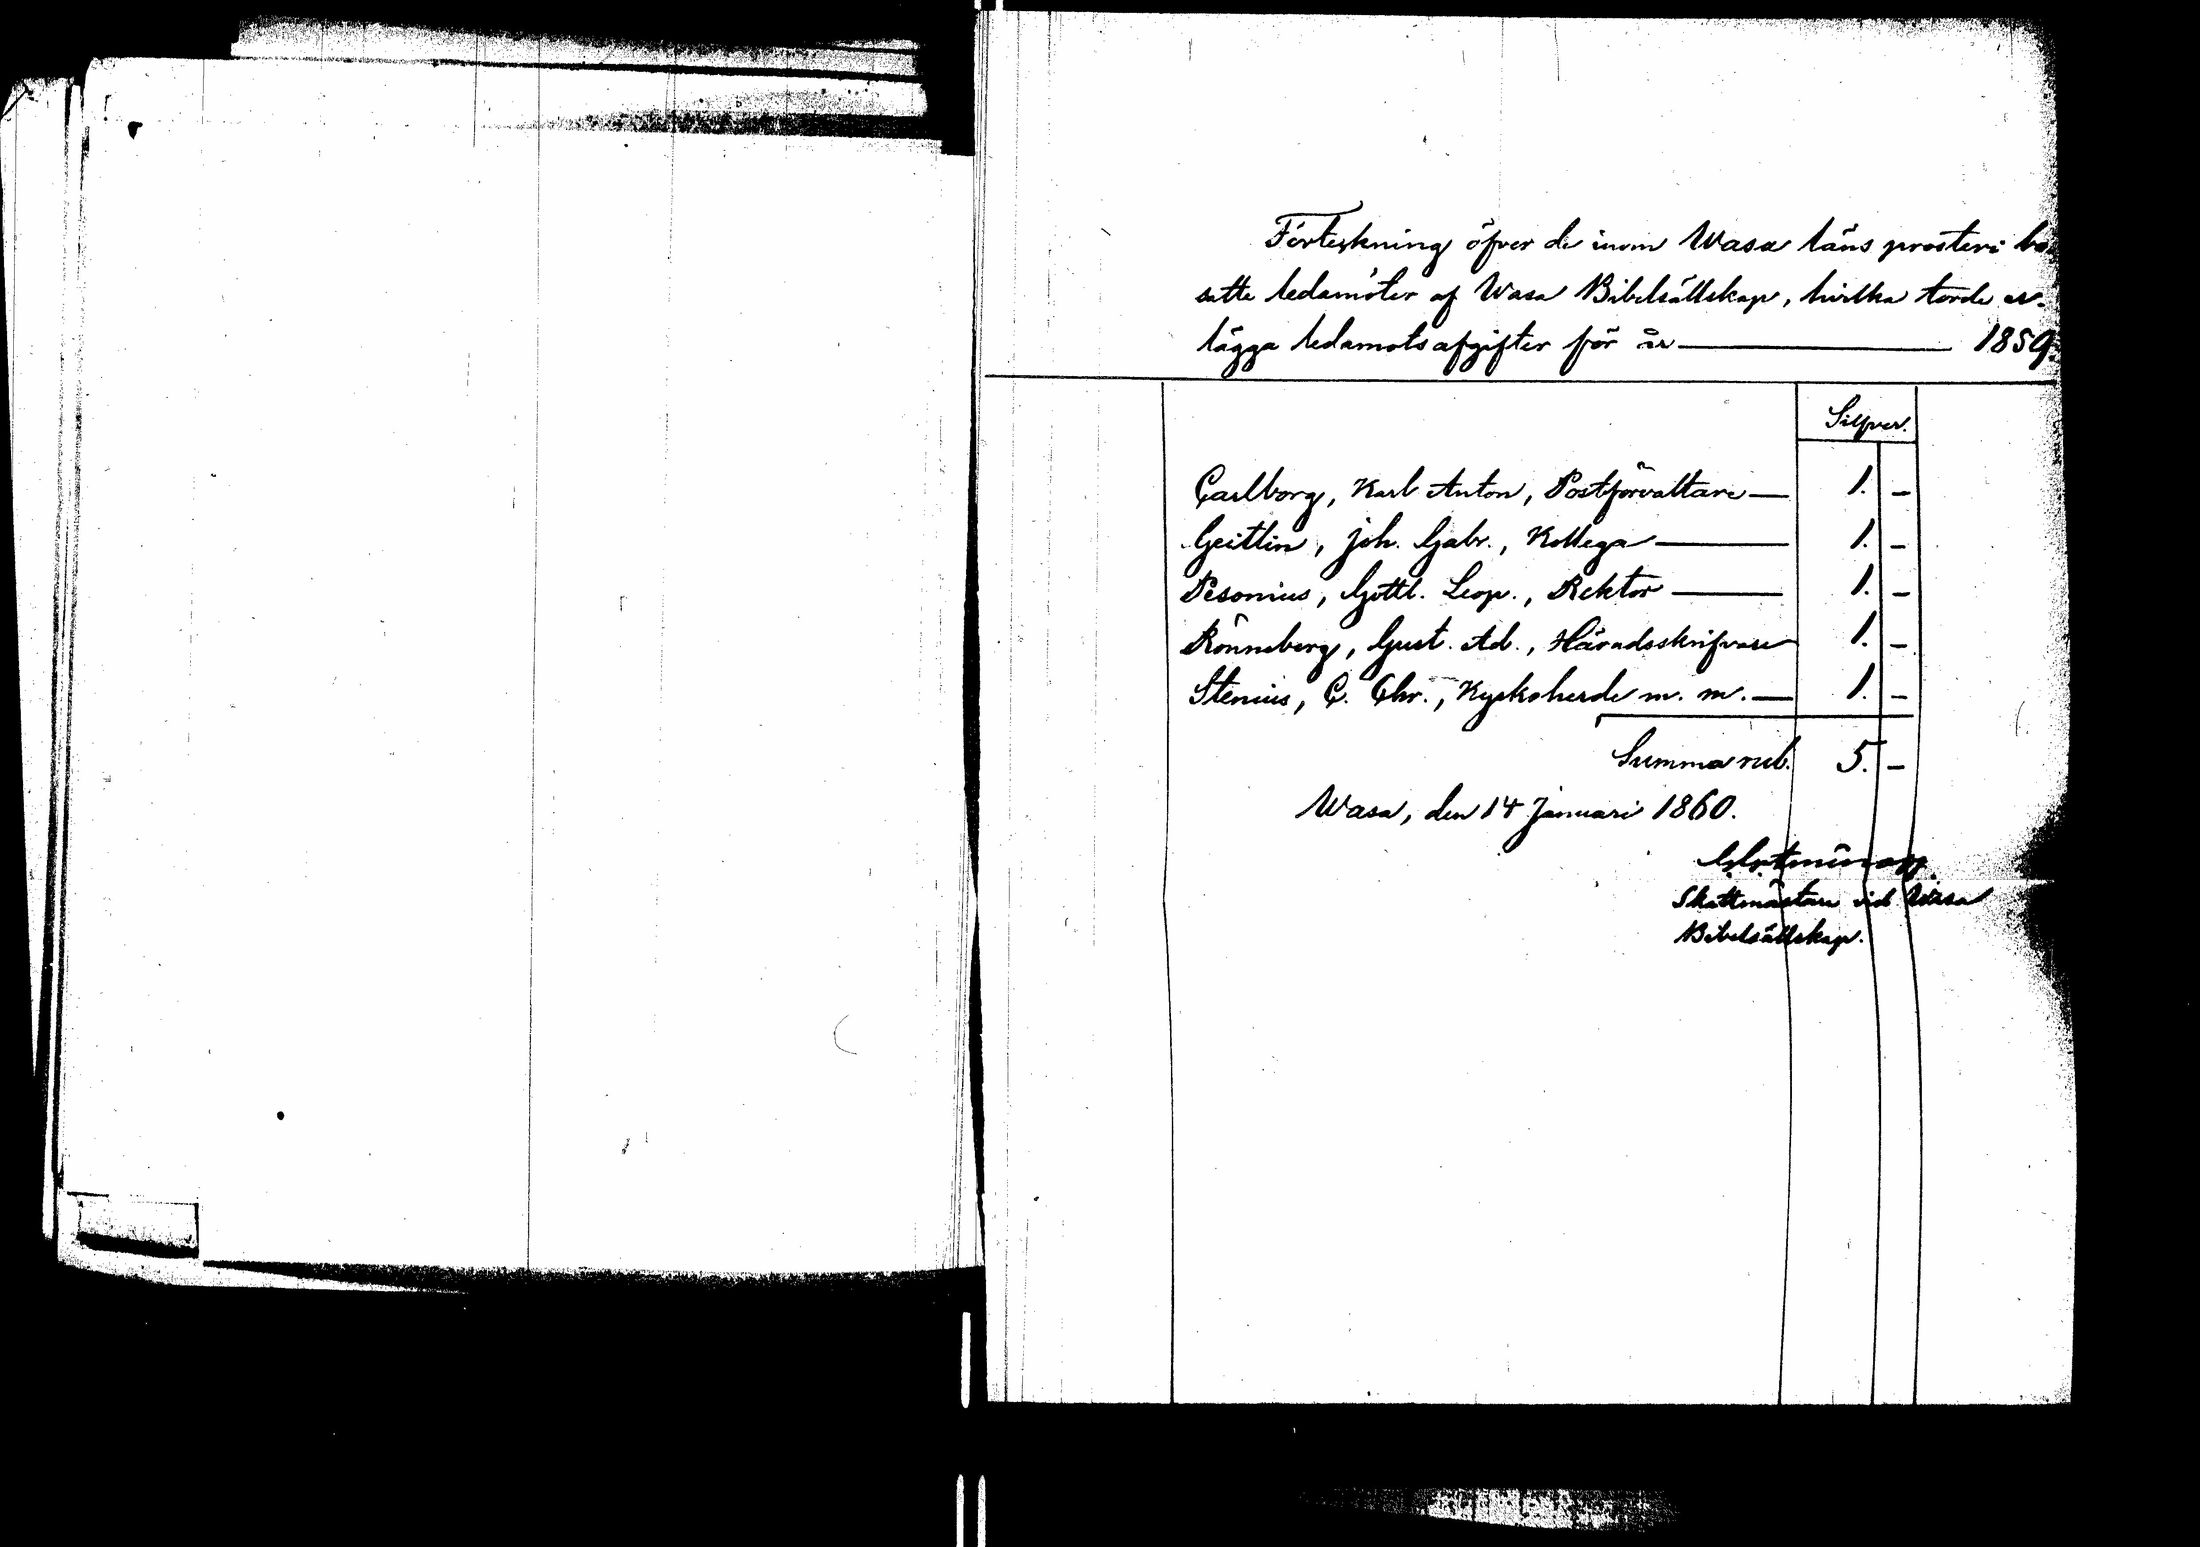 Förteckning öfver de inom Wasa läns prosteri bo
satte ledamöter af Wasa Bibelsällskap, hvilka torde er-
lägga ledamotsafgifter för år 1859.
Silfver.
Carlborg, Karl Anton, Postförvaltare 1. –
Geitlin, Joh. Gabr., Kollega 1. –
Pesonius, Gottl. Leop., Rektor 1. –
Rönneberg, Gust. Ad., Häradsskrifvare 1. –
Stenius, C. Chr., Kyrkoherde m. m. 1. –
Summa rub. 5. –
Wasa, den 14 Januari 1860.
Skattmästare vid Wasa
Bibelsällskap.